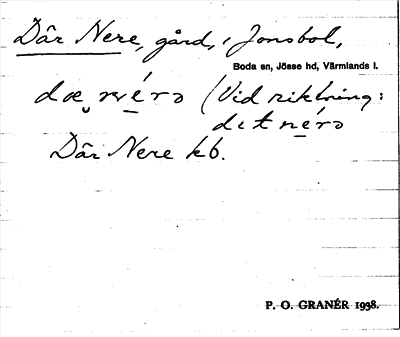 Där Nere, gård, i Jonsbol,
Boda sn, Jösse hd, Värmlands l.
dæ nérə (Vid riktning:
dit nérə
Där Nere kb.
P. O. GRANÉR 1938.